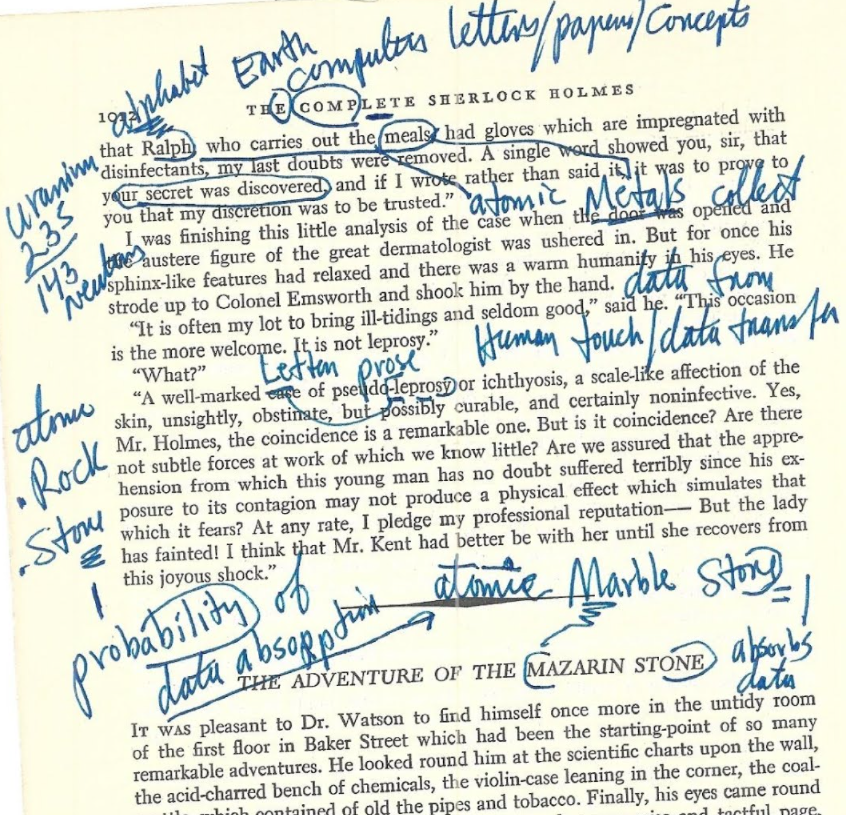 computers letters/papers/Concepts
alphabet Earth
1012 THE COMPLETE SHERLOCK HOLMES
that Ralph, who carries out the meals, had gloves which are impregnated with
disinfectants, my last doubts were removed. A single word showed you, sir, that
your secret was discovered, and if I wrote rather than said it, it was to prove to
you that my discretion was to be trusted.”
atomic Metals collect
Uranium
235
143
neutrons
I was finishing this little analysis of the case when the door was opened and
the austere figure of the great dermatologist was ushered in. But for once his
sphinx-like features had relaxed and there was a warm humanity in his eyes. He
strode up to Colonel Emsworth and shook him by the hand.
data from
“It is often my lot to bring ill-tidings and seldom good,” said he. “This occasion
is the more welcome. It is not leprosy.”
Human touch/data transfer
“What?”
Letter prose
“A well-marked case of pseudo-leprosy or ichthyosis, a scale-like affection of the
skin, unsightly, obstinate, but possibly curable, and certainly noninfective. Yes,
Mr. Holmes, the coincidence is a remarkable one. But is it coincidence? Are there
not subtle forces at work of which we know little? Are we assured that the appre-
hension from which this young man has no doubt suffered terribly since his ex-
posure to its contagion may not produce a physical effect which simulates that
which it fears? At any rate, I pledge my professional reputation— But the lady
has fainted! I think that Mr. Kent had better be with her until she recovers from
this joyous shock.”
atomic
. Rock
. Stone
1
probability of
data absorption
atomic Marble Stone = 1
absorbs
data
THE ADVENTURE OF THE MAZARIN STONE
IT WAS pleasant to Dr. Watson to find himself once more in the untidy room
of the first floor in Baker Street which had been the starting-point of so many
remarkable adventures. He looked round him at the scientific charts upon the wall,
the acid-charred bench of chemicals, the violin-case leaning in the corner, the coal-
which contained of old the pipes and tobacco. Finally, his eyes came round
and tactful page,